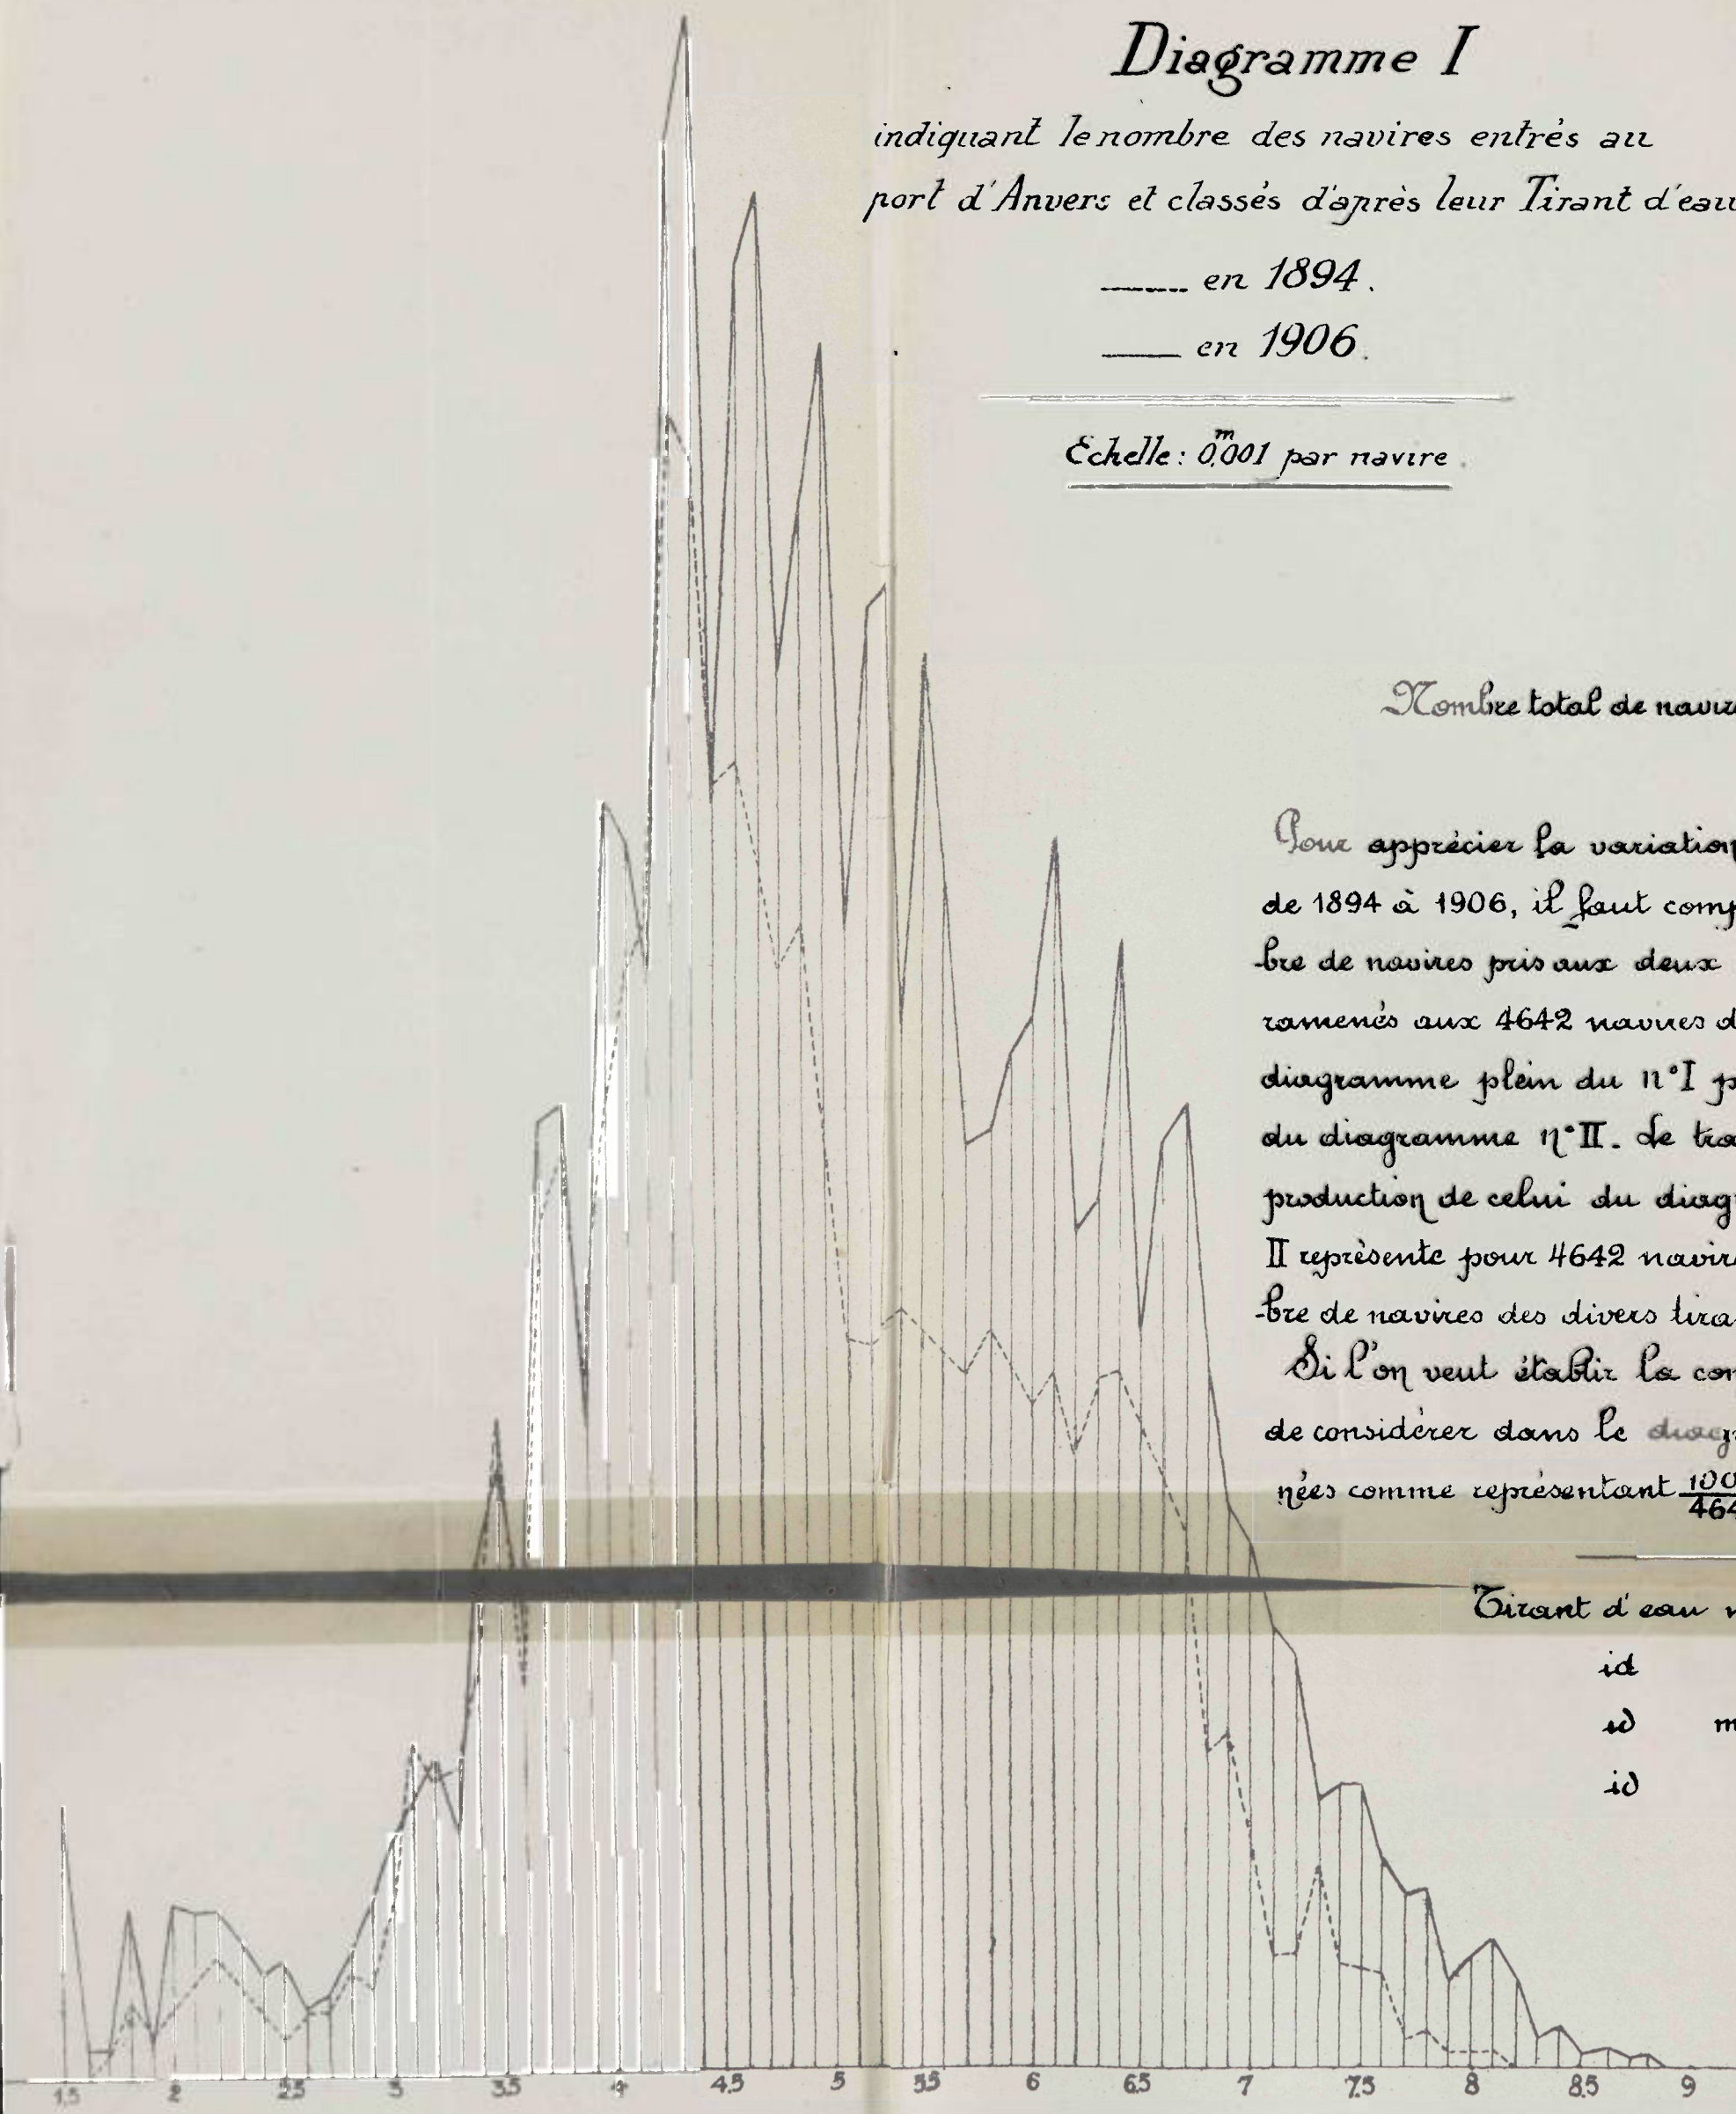 Diagramme I
indiquant le nombre des navires entrés au
port d'Anvers et classés d'après leur Tirant d'eau
en 1894.
en 1906.
Echelle: 0,001 par navire.
m
Nombre total de navire
Pour apprécier la variation
de 1894 à 1906, il faut comp
-bre de navires pris aux deux
ramenés aux 4642 navires d
diagramme plein du n°I p
du diagramme n°II. Le tra
production de celui du diag
II représente pour 4642 navire
-bre de navires des divers tira
Si l'on veut établir la con
de considérer dans le diag
nées comme représentant 100
464
Tirant d'eau
id
id m
id
1.5 2 2.5 3 3.5 4 4.5 5 5.5 6 6.5 7 7.5 8 8.5 9